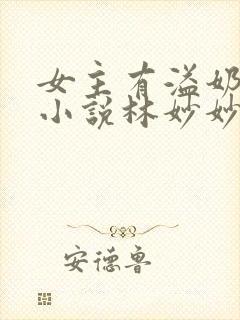 女主有溢奶
小说林妙妙
安德鲁